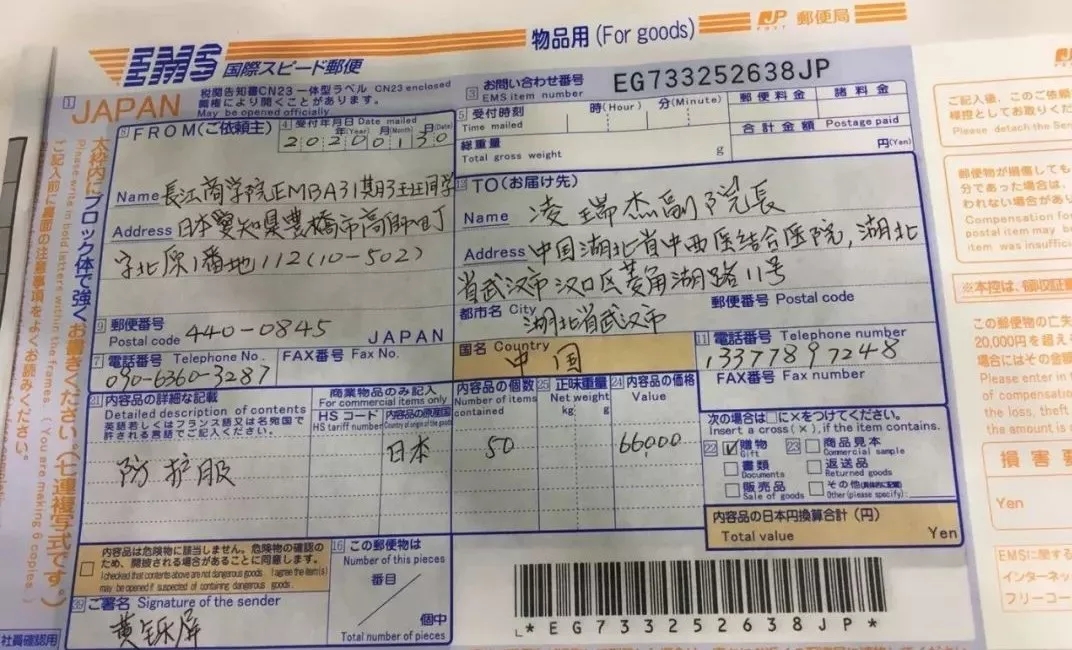 物品用 (For goods)
JP POST 郵便局
EMS 国際スピード郵便
税関告知書CN23 一体型ラベル CN23 enclosed
開権により開くことがあります。
May be opened officially
1 JAPAN
3 お問い合わせ番号
EMS item number
EG733252638JP
太枠内にブロック体で強くお書きください。(七連複写式です。)
Please write in bold letters within the frames. (You are making 6 copies.)
ご記入前に裏面の注意事項をよくお読みください。
FROM (ご依頼主)
4 受付年月日 Date mailed
年(Year) 月(Month) 日(Date)
20200130
5 受付時刻
Time mailed
時(Hour) 分(Minute)
郵便料金
諸料金
合計金額 Postage paid
円(Yen)
総重量
Total gross weight
g
Name 長江商学院EMBA31期3班班同学
Address 日本愛知県豊橋市高師町
字北原1番地112(10-502)
9 郵便番号
Postal code 440-0845
JAPAN
7 電話番号 Telephone No.
090-6360-3287
FAX番号 Fax No.
TO (お届け先)
Name 凌瑞杰副院長
Address 中国湖北省中西医结合医院,湖北
省武汉市汉口区菱角湖路11号
都市名 City
湖北省武汉市
郵便番号 Postal code
国名 Country
中国
11 電話番号 Telephone number
13377897248
FAX番号 Fax number
21 内容品の詳細な記載
Detailed description of contents
英語若しくはフランス語又は名宛国で
許される言語でご記入ください。
商業物品のみ記入
For commercial items only
HSコード
HS tariff number
内容品の原産国
Country of origin of the goods
内容品の個数
Number of items
contained
25 正味重量
Net weight
kg g
24 内容品の価格
Value
防护服
日本
50
66,000
次の場合は□に×をつけてください。
Insert a cross (×), if the item contains.
22 贈物
Gift
23 商品見本
Commercial sample
書類
Documents
返送品
Returned goods
販売品
Sale of goods
その他(具体的に記載)
Other (please specify):
内容品の日本円換算合計 (円)
Total value
Yen
内容品は危険物に該当しません。危険物の確認の
ため、開披される場合があることに同意します。
I checked that contents above are not dangerous goods. I agree the item(s)
may be opened if suspected of containing dangerous goods.
16 この郵便物は
Number of this pieces
番目
個中
Total number of pieces
ご署名 Signature of the sender
社員確認用
*EG733252638JP*
ご記入後、このご依頼
様控としてお取りくだ
Please detach the Sen
郵便物が損傷しても
分であった場合は、
われない場合があり
Compensation for
postal item may be
item was insufficie
※本控は、領収証書
この郵便物の亡失
20,000円を超え
場合にはその金額
Please enter in t
of compensation
the loss, theft
the amount is
損害要
Yen
EMSに関する
インターネッ
フリーコー